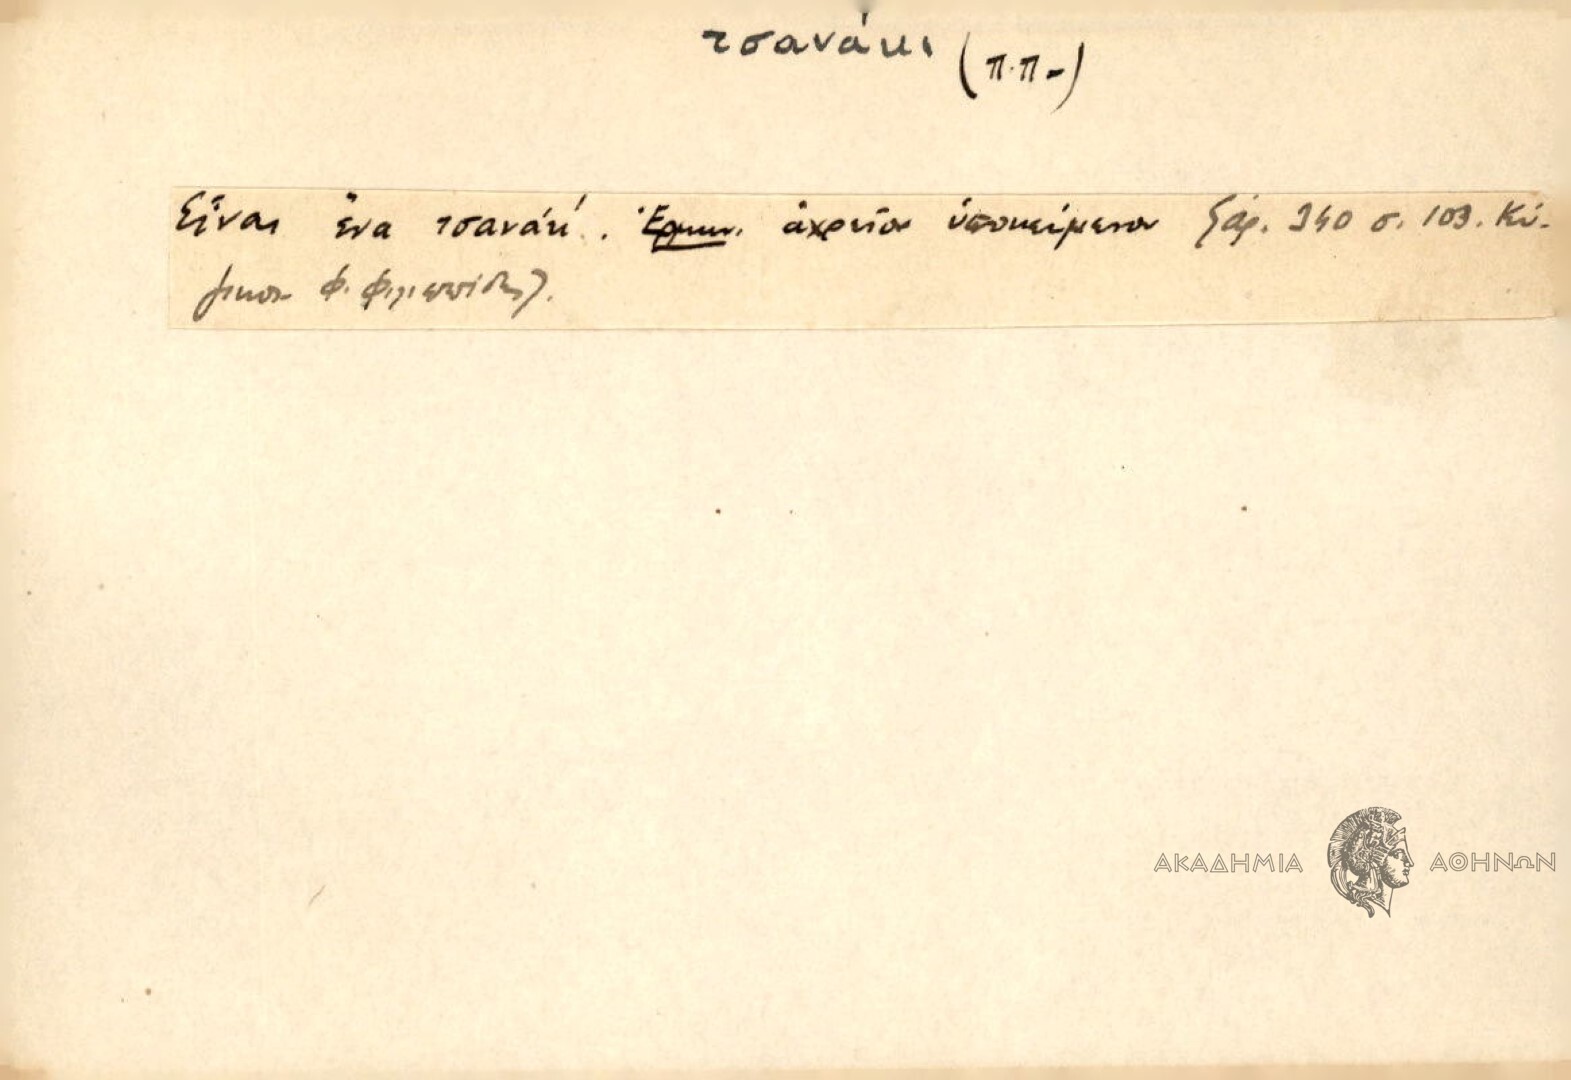 τσανάκι (π.π-)
Εἶναι ἕνα τσανάκι! . Ἑρμην. ἀχρεῖον ὑποκείμενον (ἀρ. 340 σ. 103. Κύ-
Φ. Φιλιππίδης).
ΑΚΑΔΗΜΙΑ ΑΘΗΝΩΝ